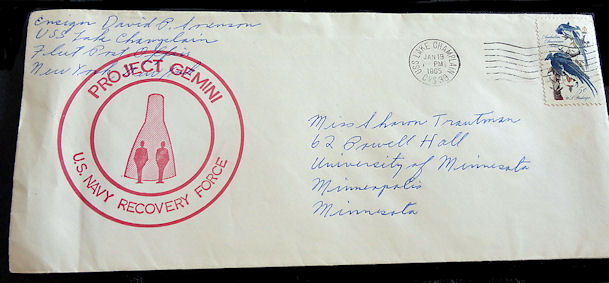 Ensign David P. Sorenson
USS Lake Champlain
Fleet Post Office
New York, New York
PROJECT GEMINI
U.S. NAVY RECOVERY FORCE
USS LAKE CHAMPLAIN
JAN 19
PM
1965
CVS 39
Miss Sharon Trautman
62 Powell Hall
University of Minnesota
Minneapolis
Minnesota